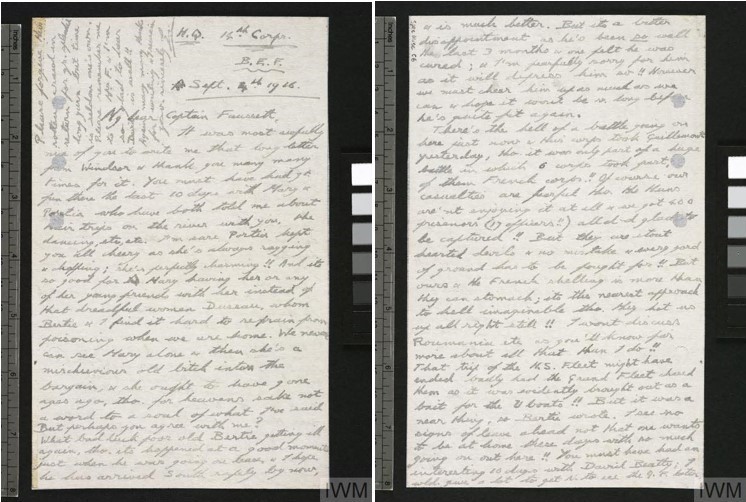 H.Q. 14th Corps.
B.E.F.
Sept. 4th 1916.
My dear Captain Fausset,
It was most awfully
nice of you to write me that long letter
from Windsor & thank you many many
times for it. You must have had gt
fun there the last 10 days with Mary &
Portia who have both told me about
their trips on the river with you, the
dancing, etc, etc. I'm sure Portia kept
you all cheery as she's always ragging
& chaffing; she's perfectly charming!! And its
so good for Mary having her or any
of her young friends with her instead of
that dreadful woman Dussau, whom
Bertie & I find it hard to refrain from
poisoning when we are home. We never
can see Mary alone & then she's a
mischievous old bitch into the
bargain, & she ought to have gone
ages ago, tho. for heavens sake not
a word to a soul of what I've said
But perhaps you agree with me?
What bad luck poor old Bertie getting ill
again, tho. its happened at a good moment
just when he was going on leave, & I hope
he has arrived South safely by now,
Please forgive this
& is much better. But its a bitter
disappointment as he's been so well
the last 3 months & one felt he was
cured; & I'm fearfully sorry for him
as it will depress him so!! However
we must cheer him up as much as we
can & hope it won't be v. long before
he's quite fit again.
There's the hell of a battle going on
here just now & our corps took Guillemont
yesterday, tho. it was only part of a huge
battle in which 6 corps took part,
of them French corps!! Of course our
casualties are fearful tho. the Huns
aren't enjoying it at all & we got 600
prisoners (17 officers!!) all d—d glad to
be captured!! But they are stout
hearted devils & no mistake & every yard
of ground has to be fought for!! But
ours & the French shelling is more than
they can stomach; its the nearest approach
to hell imaginable tho. they hit us
up all right still!! I wont discuss
Roumania etc as you'll know far
more about all that than I do!!
That trip of the H.S. Fleet might have
ended badly had the Grand Fleet chased
them as it was evidently brought out as a
bait for the U boats!! But it was a
near thing, so Bertie wrote. I see no
signs of leave ahead not that one wants
to be at home these days with so much
going on out here!! You must have had an
interesting 10 days with David Beatty; I
IWM
IWM